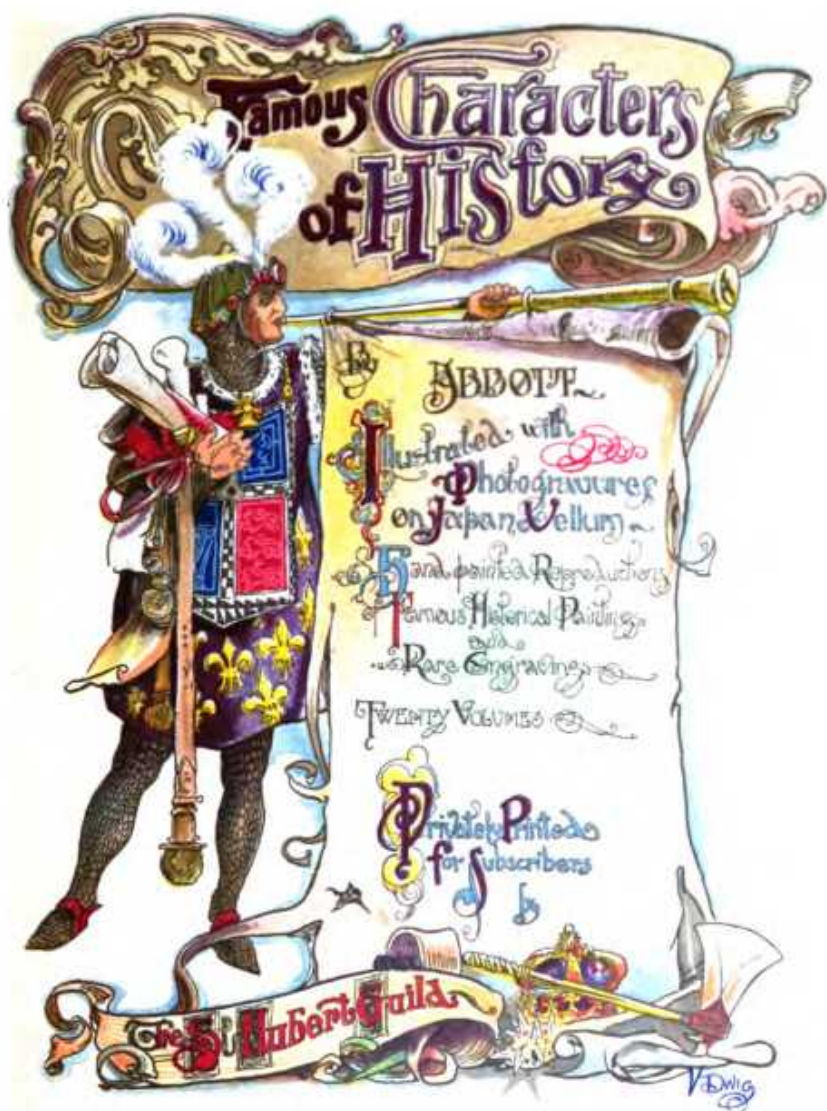 Famous Characters
of History
By
ABBOTT
Illustrated with
Photogravures
on Japan Vellum
Hand painted Reproductions
Famous Historical Paintings
and
Rare Engravings
TWENTY VOLUMES
Privately Printed
for Subscribers
by
The St Hubert Guild